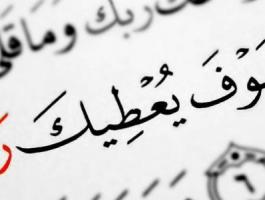 ربك وما قلى
وْفَ يُعْطِيكَ
٦